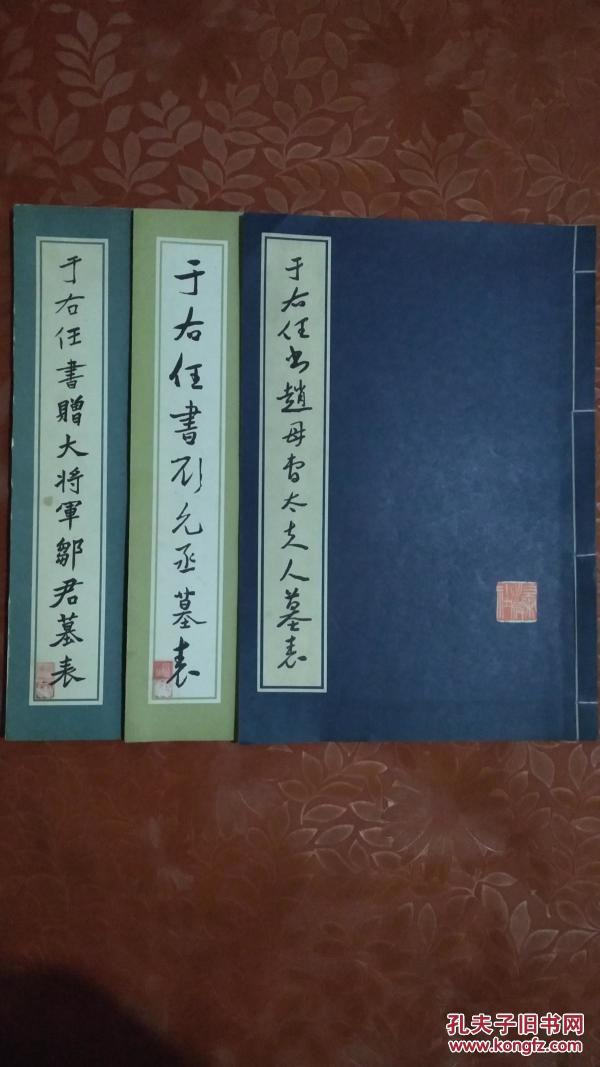 于右任書贈大将軍鄒君墓表
于右任書劉允丞墓表
于右任书趙母曹太夫人墓表
孔夫子旧书网
www.kongfz.com